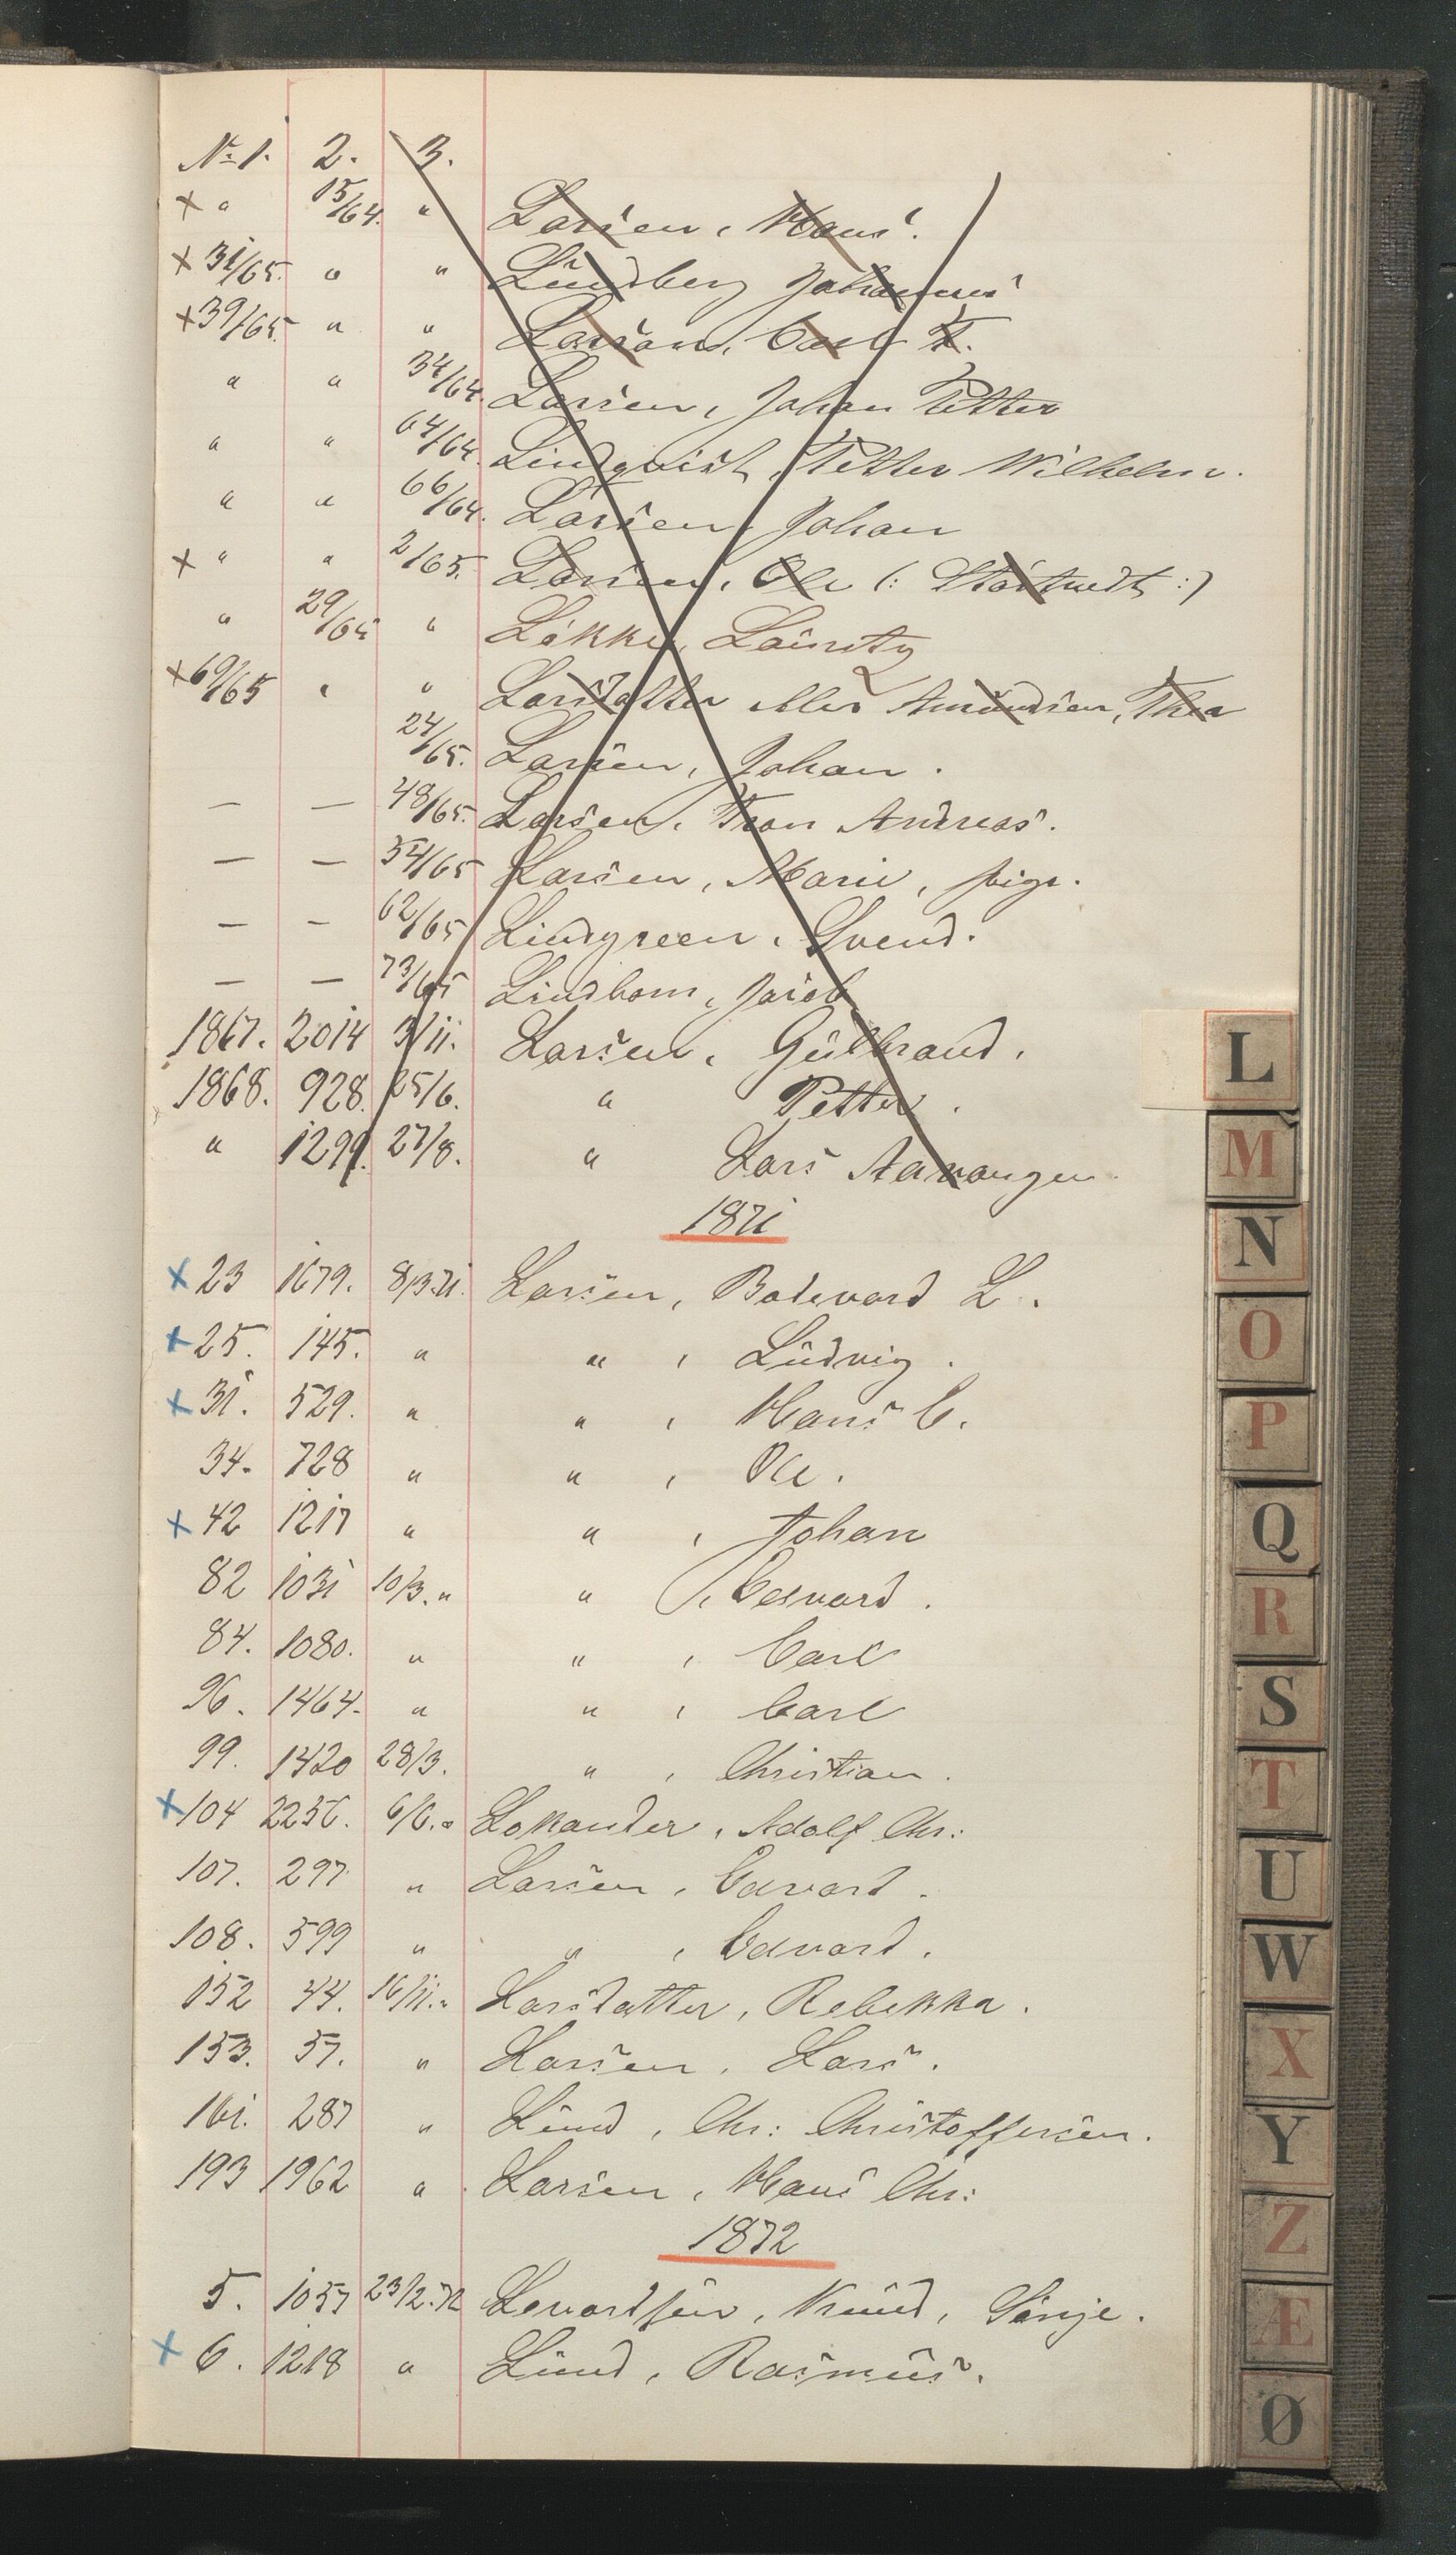 No 1. 2. 3.
× " 15/64. " Larsen, Hans.
× 31/65. " " Lundberg Johannes
× 39/65. " " Larsen, Carl F.
" " 34/64. Larsen, Johan Petter
" " 64/64. Lindqvist, Petter Wilhelm.
" " 66/64. Larsen, Johan
× " " 2/65. Larsen, Ole (: :)
" 29/65 " Løkke, Lauritz
× 69/65 " " Larsdatter eller Amundsen, Thea
24/65. Larsen, Johan.
— — 48/65. Larsen, Andreas.
— — 54/65 Larsen, Marie, pige.
— — 62/65 Lindgreen, Svend.
— — 73/65 Lindbom, Jacob
1867. 2014 3/11. Larsen, Gulbrand.
1868. 928. 25/6. " Petter.
" 1299. 27/8. " Lars Aavangen.
1871
× 23 1679. 8/3.71. Larsen, Bodevard L.
× 25. 145. " " , Ludvig.
× 31. 529. " " , Hans C.
34. 728 " " , Ole.
× 42 1217 " " , Johan
82 1031 10/3. " " , Edvard.
84. 1080. " " , Carl
96. 1464. " " , Carl
99. 1420 28/3. " , Christian.
× 104 2256. 6/6. " Lokander, Adolf Chr:
107. 297 " Larsen, Edvard.
108. 599 " " , Edvard.
152 44. 16/11. " Larsdatter, Rebekka.
153. 57. " Larsen, Lars.
161. 287 " Lund, Chr: Christoffersen.
193 1962 " Larsen, Hans Chr:
1872
5. 1057 23/2.72 Levordsen, Knud, Sønje.
× 6. 1218 " Lund, Rasmus.
L
M
N
O
P
Q
R
S
T
U
W
X
Y
Z
Æ
Ø